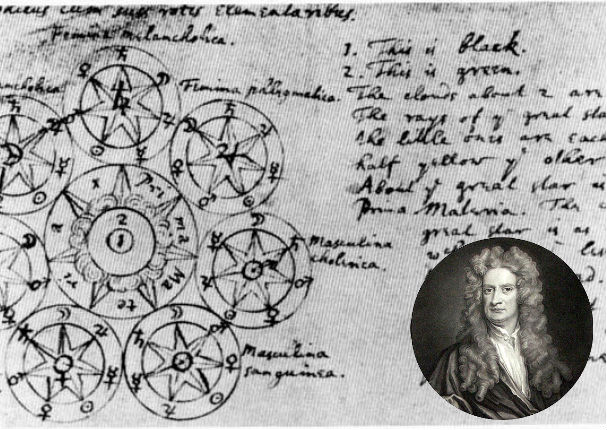 cum suis rotis Elementaribus.
Femina melancholica.
ancholica
Femina phlegmatica.
Masculina
cholerica.
Masculina
sanguinea.
Pri
ma
Ma
te
ri
a
2
1
1. This is black.
2. This is green.
The clouds about 2 are
The rays of yᵉ great sta
the little ones are each
half yellow yᵉ other
About yᵉ great star is
Prima Materia. The
great star is as